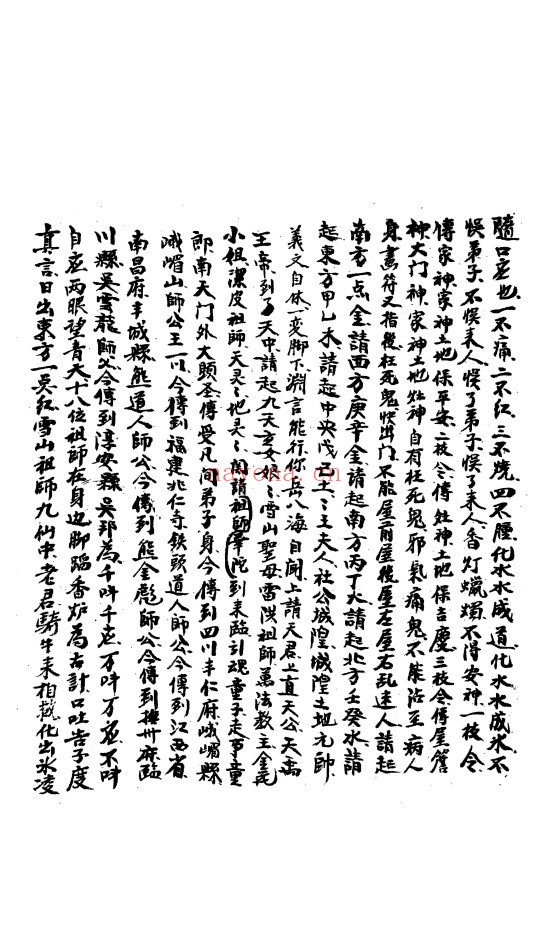 隨口應也一不痛二不紅三不燒四不腫化水水成道化水水成氷不
悮弟子不悮来人悮了弟子悮了来人香灯蠟燭不得安神一枝令
傳家神家神土地保平安二枝令傳灶神土地保吉慶三枝令傳屋簷
神大门神家神土地灶神自有枉死鬼邪氣痛鬼不能沾至病人
身畫符又指後枉死鬼快出门不能屋前屋後屋左屋右乱迷人請起
南方一点金請西方庚辛金請起南方丙丁火請起北方壬癸水請
起東方甲乙木請起中央戊己土土王夫人社公城隍城隍土地元帥
義文自休一变脚下渊言能行你岳八海自開上請天君上直天公天禹
王帝到了天中請起九天玄女娘々雪山聖母雷洪祖師萬法教主金花
小姐潔皮祖師天灵々地灵々相請祖師華陀到来臨討魂童子走事童
郎南天门外大頭圣傳受凡间弟子身今傳到四川丰仁府峨嵋縣
峨嵋山師公王一川今傳到福建兆仁寺鉄頭道人師公今傳到江西省
南昌府丰城縣熊道人師公今傳到熊金彪師公今傳到撫州府臨
川縣吴雪龍師父今傳到淳安縣吴邦為千叫千應万叫万應不叫
自應两眼望青天十八位祖師在身边脚踏香炉為古計口吐告子度
真言日出東方一点红雪山祖師九仙中老君騎牛来相救化出氷凌
nayona.cn